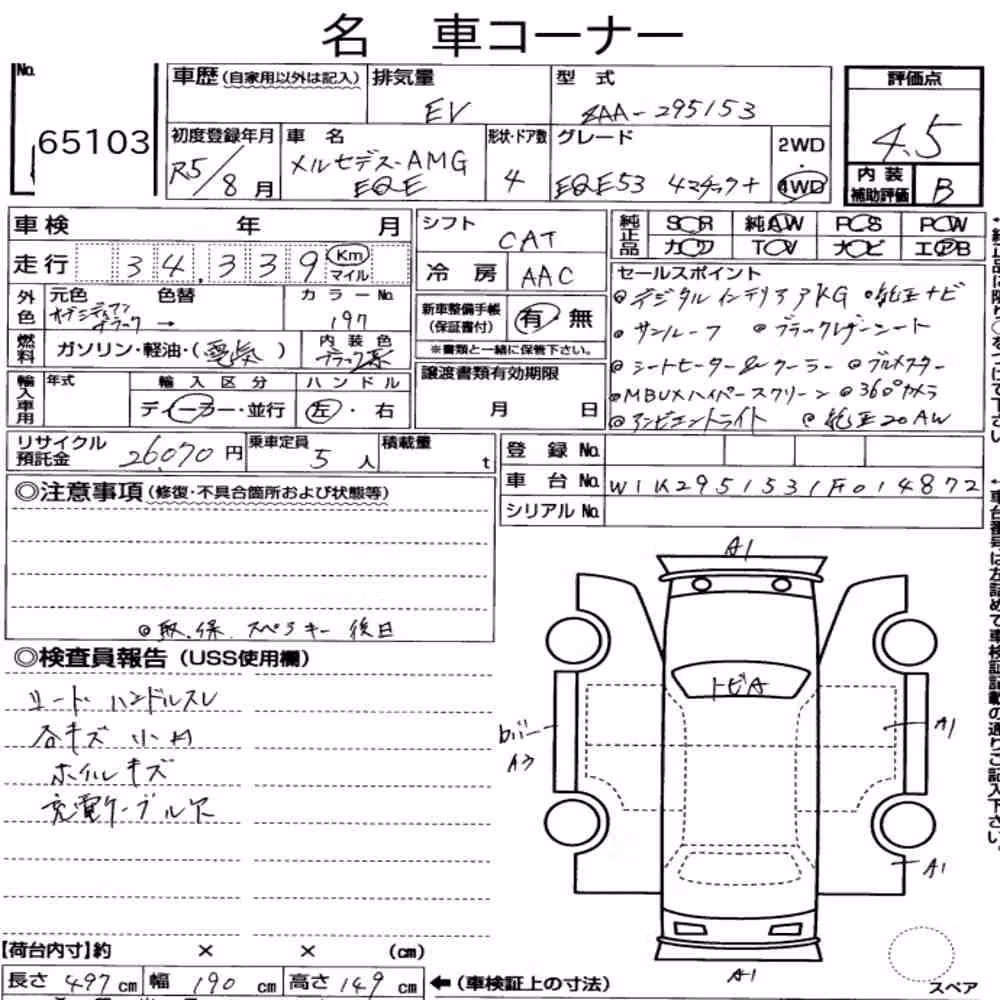 名 車コーナー
No.
65103
車歴(自家用以外は記入)
排気量
EV
型式
ZAA-295153
初度登録年月
R5/8月
車名
メルセデス-AMG
EQE
形状・ドア数
4
グレード
EQE53 4マチック+
2WD
・
4WD
評価点
4.5
内装
補助評価
B
車検 年 月
走行 34,339 Km マイル
外色
元色
色替
カラーNo.
オブシディアン
ブラック →
197
燃料
ガソリン・軽油・(電気)
内装色
ブラック系
輸入車用
年式
輸入区分
ディーラー・並行
ハンドル
左・右
シフト
CAT
冷房
AAC
新車整備手帳
(保証書付)
有 無
※書類と一緒に保管下さい。
譲渡書類有効期限
月 日
純正品
SR 純AW PS PW
カワ TV ナビ エアB
セールスポイント
◎デジタルインテリアPKG ◎純正ナビ
◎サンルーフ ◎ブラックレザーシート
◎シートヒーター&クーラー ◎ブルメスター
◎MBUXハイパースクリーン ◎360°カメラ
◎アンビエントライト ◎純正20AW
リサイクル
預託金
26,070円
乗車定員
5人
積載量
t
登録No.
車台No.
W1K2951531F014872
シリアルNo.
◎注意事項(修復・不具合箇所および状態等)
◎取.保.スペアキー 後日
◎検査員報告(USS使用欄)
シート・ハンドルスレ
各キズ 小凹
ホイルキズ
充電ケーブル欠
A1
トビA
バリー
A3
A1
A1
A1
スペア
【荷台内寸】約 × × (cm)
長さ 497cm 幅 190cm 高さ 149cm
←(車検証上の寸法)